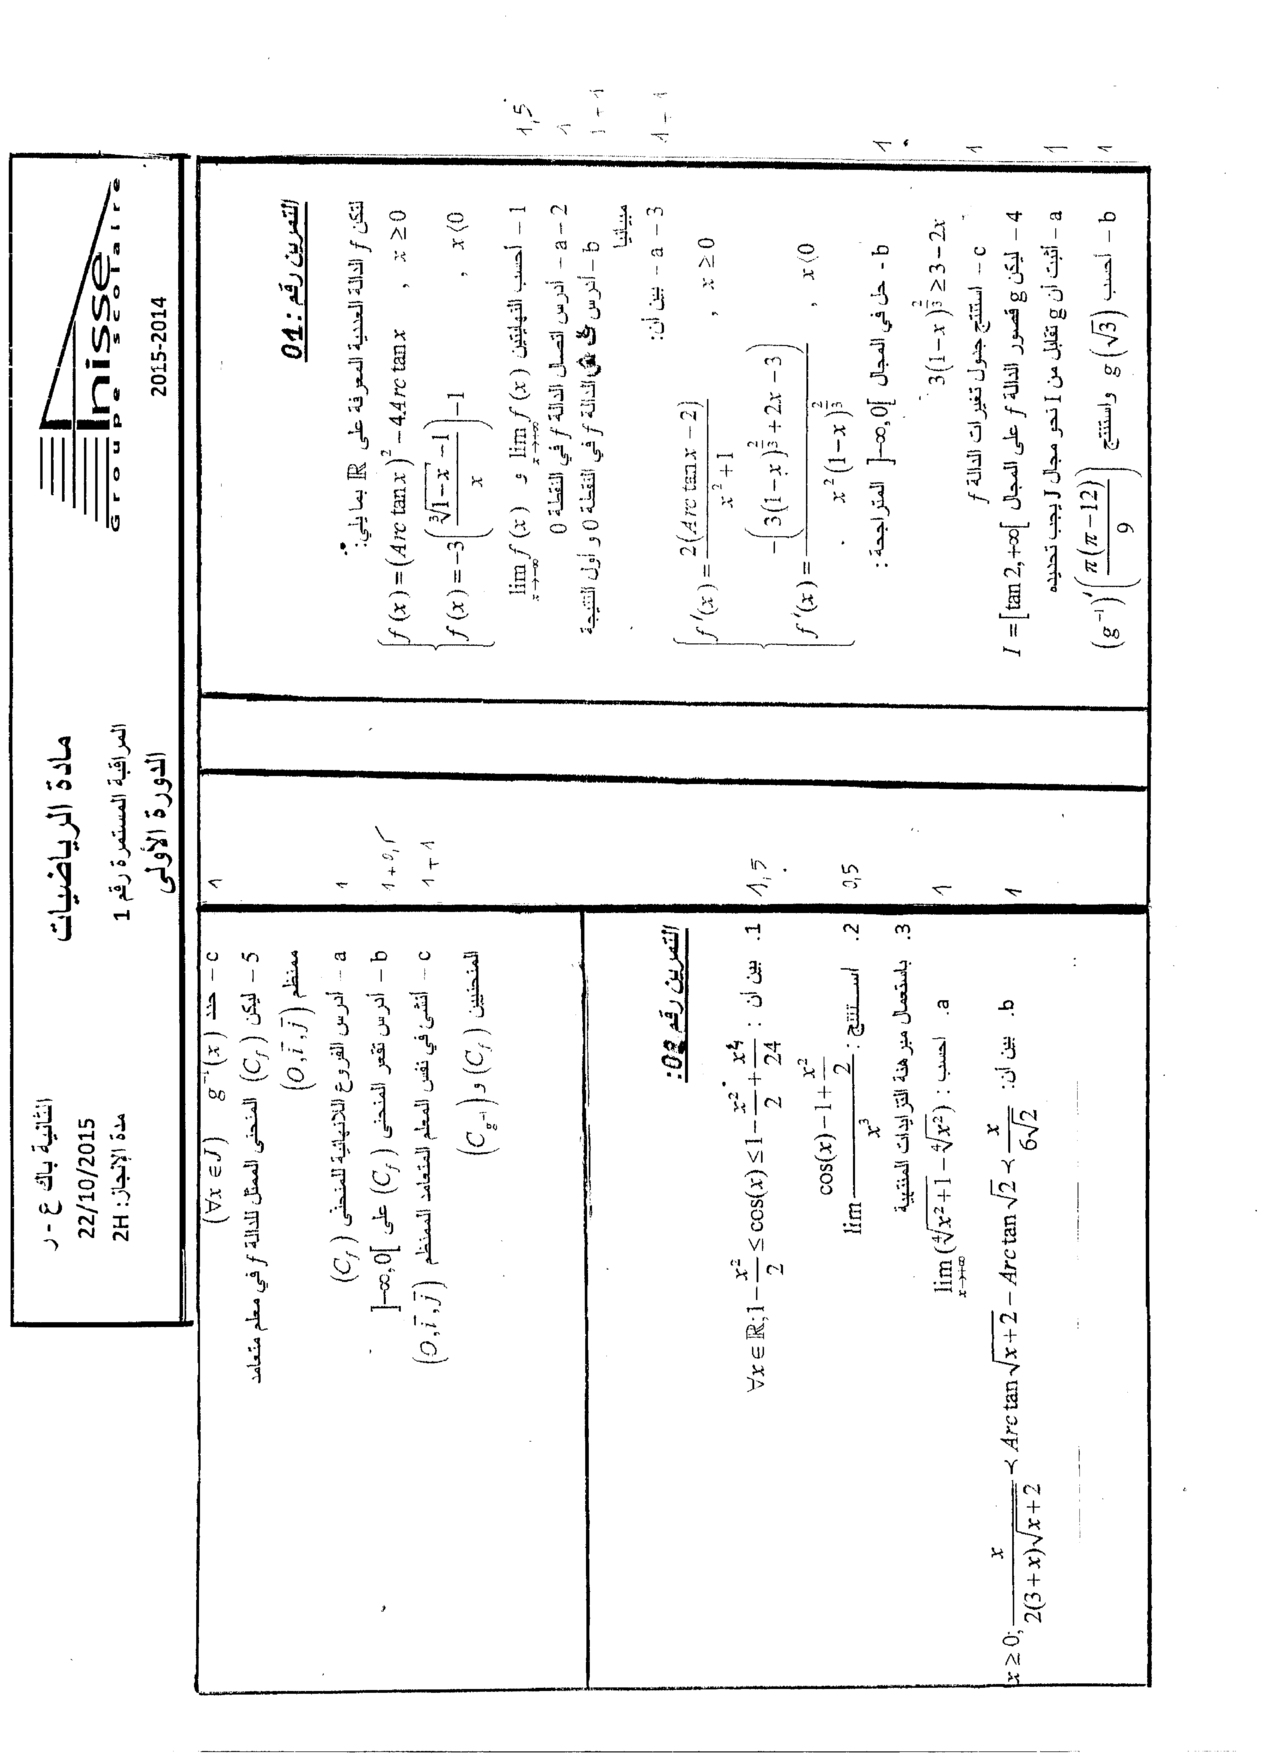 Anisse
Groupe scolaire
2015-2014
مادة الرياضيات
المراقبة المستمرة رقم 1
الدورة الأولى
الثانية باك ع - ر
22/10/2015
مدة الإنجاز: 2H
التمرين رقم : 01
لتكن f الدالة العددية المعرفة على ℝ بما يلي:
f(x) = (Arc tan x)² − 4.Arc tan x , x ≥ 0
f(x) = −3((∛(1−x) − 1)/x) − 1 , x⟨0
1 – أحسب النهايتين lim_{x→+∞} f(x) و lim_{x→−∞} f(x) 1,5
2 – a – أدرس اتصال الدالة f في النقطة 0 1
b – أدرس الدالة f في النقطة 0 و أول النتيجة 1+1
مبيانيا
3 – a – بين أن: 1+1
f'(x) = 2(Arc tan x − 2)/(x² + 1) , x ≥ 0
f'(x) = −(3(1−x)^{2/3} + 2x − 3)/(x²(1−x)^{2/3}) , x⟨0
b - حل في المجال ]−∞,0[ المتراجحة : 1
3(1−x)^{2/3} ≥ 3 − 2x
c – استنتج جدول تغيرات الدالة f 1
4 – ليكن g قصور الدالة f على المجال I = [tan 2,+∞[
a – أثبت أن g تقابل من I نحو مجال J يجب تحديده 1
b – أحسب g(√3) واستنتج (g⁻¹)'(π(π−12)/9) 1
c – حدد g⁻¹(x) (∀x ∈ J) 1
5 – ليكن (C_f) المنحنى الممثل للدالة f في معلم متعامد
ممنظم (O, i, j)
a – أدرس الفروع اللانهائية للمنحنى (C_f) 1
b – أدرس تقعر المنحنى (C_f) على ]−∞,0[ 1+0,5
c – أنشئ في نفس المعلم المتعامد الممنظم (O, i, j) 1+1
المنحنيين (C_f) و (C_{g⁻¹})
التمرين رقم 02:
1. بين أن : ∀x ∈ ℝ; 1 − x²/2 ≤ cos(x) ≤ 1 − x²/2 + x⁴/24 1,5
2. استنتج : lim (cos(x) − 1 + x²/2)/x³ 0,5
3. باستعمال مبرهنة التزايدات المنتهية
a. احسب : lim_{x→+∞} (∜(x²+1) − ∜(x²)) 1
b. بين أن: x ≥ 0; x/(2(3+x)√(x+2)) ≺ Arc tan √(x+2) − Arc tan √2 ≺ x/(6√2) 1